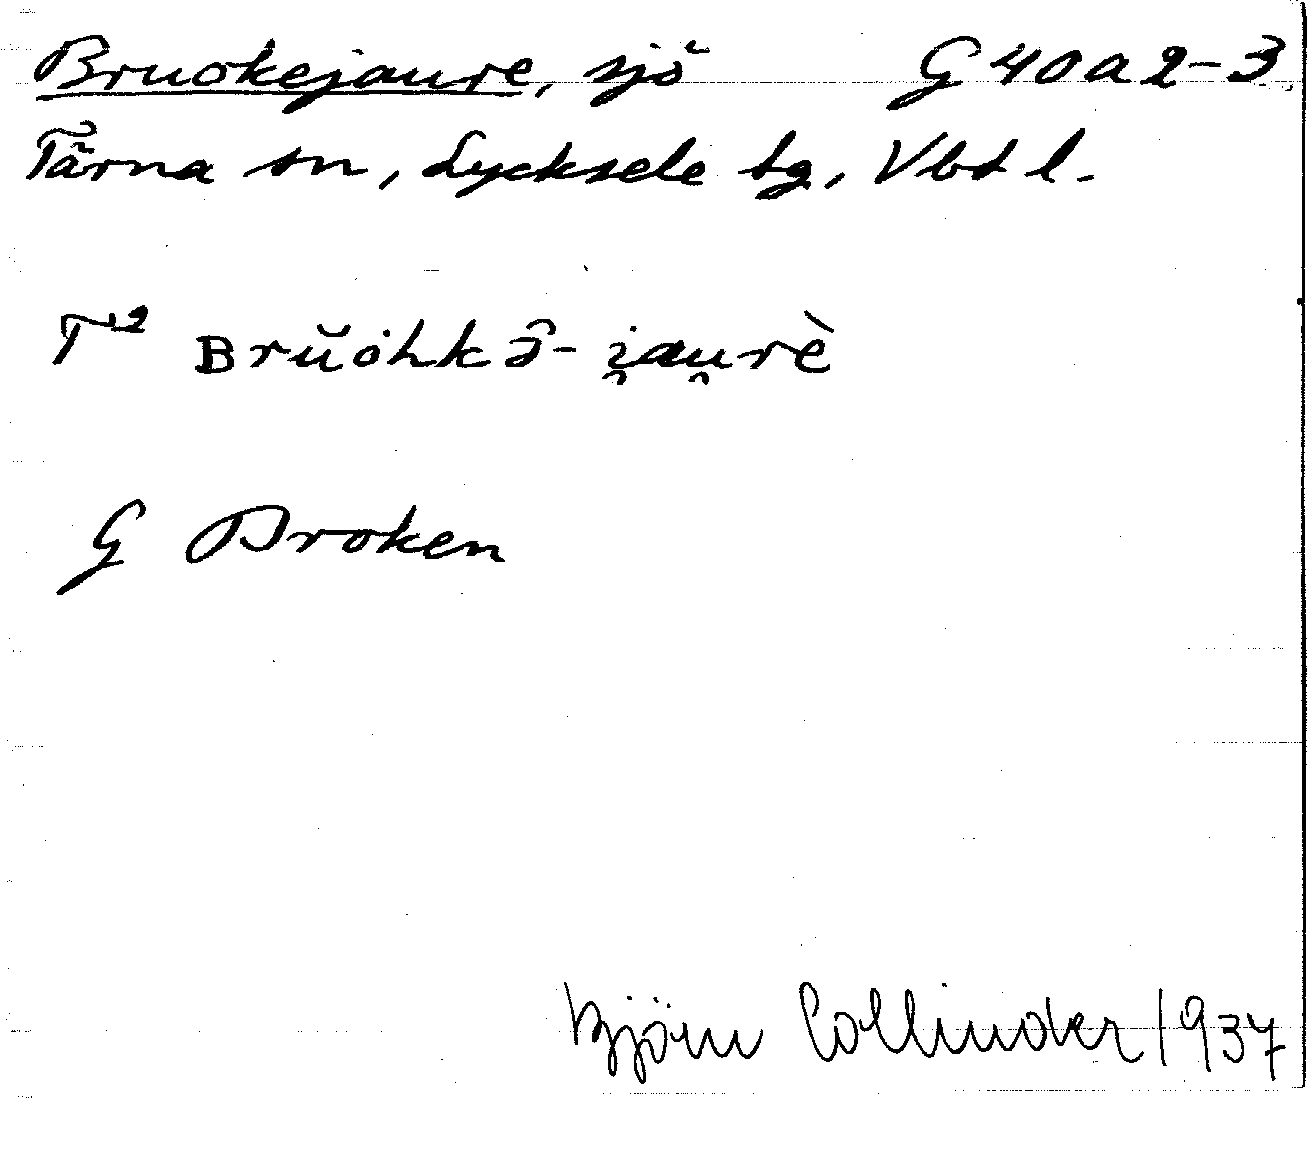 Bruokejaure, sjö G 40 a 2-3
Tärna sn, Lycksele lg, Vbt l.
T² Brŭȯhkā̂-i̯au̯rè
G Broken
Björn Collinder 1937